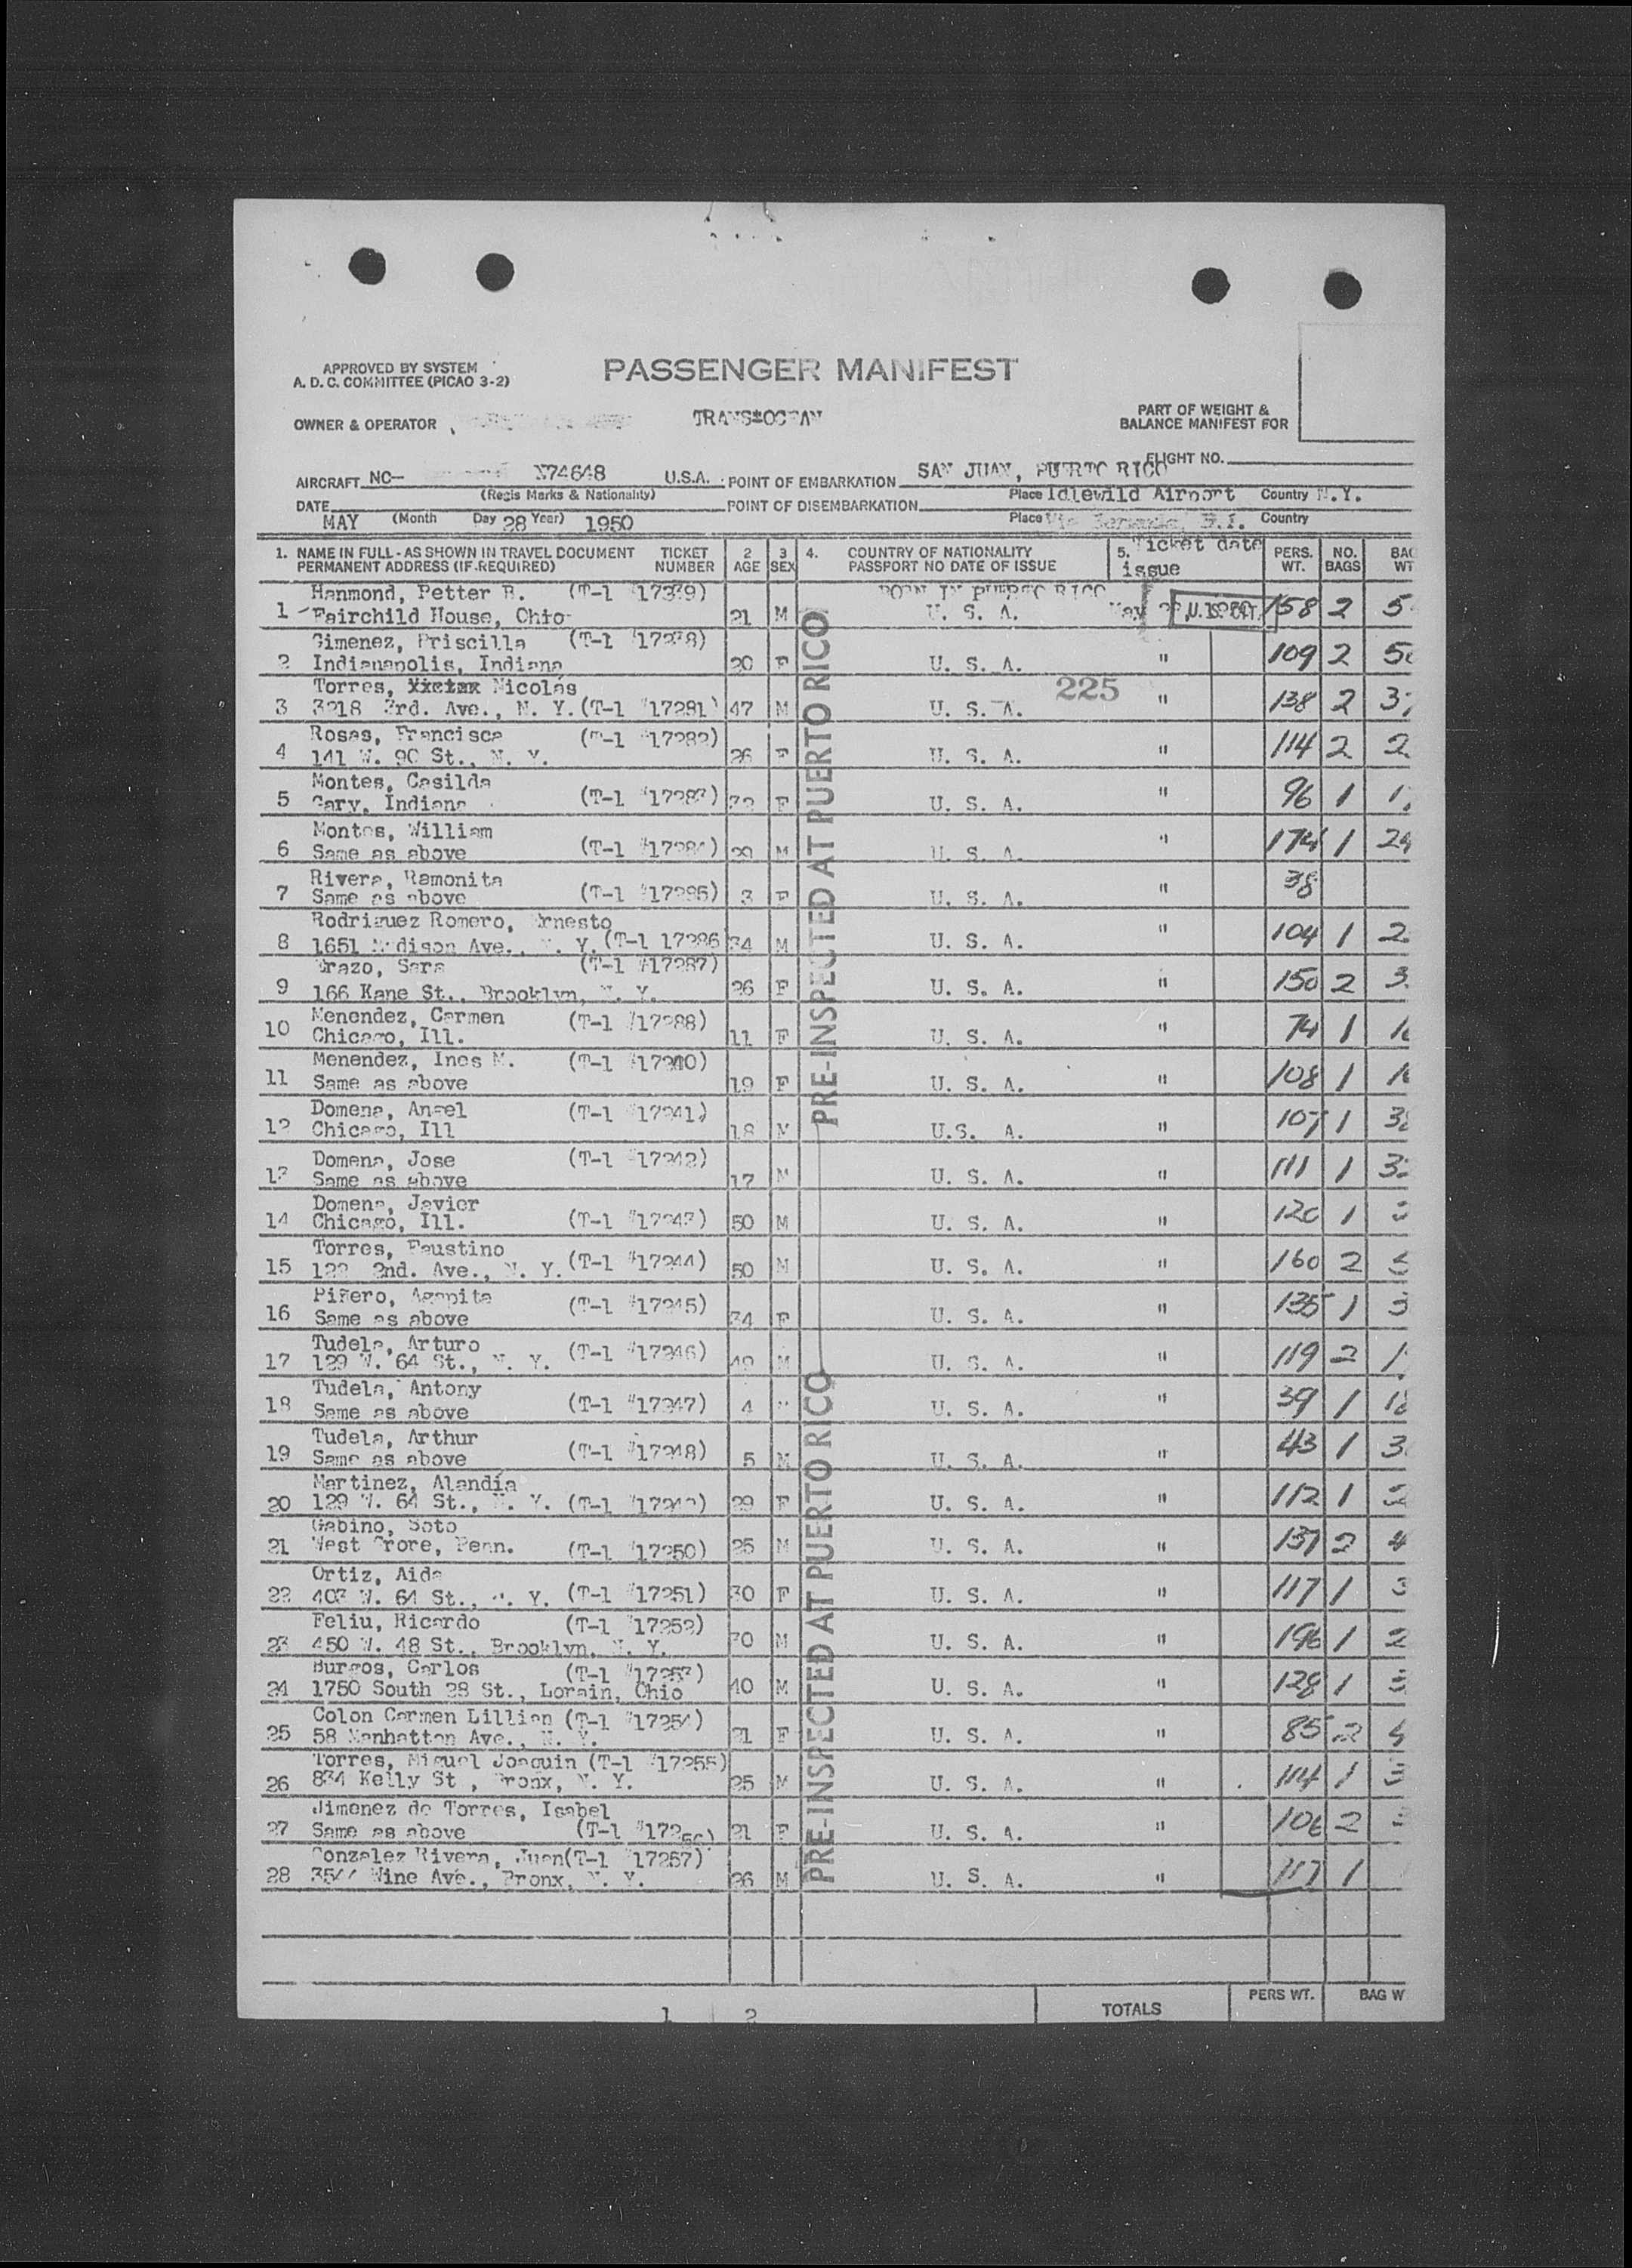 APPROVED BY SYSTEM
A. D. C. COMMITTEE (PICAO 3-2)
PASSENGER MANIFEST
OWNER & OPERATOR
TRANS*OCEAN
PART OF WEIGHT &
BALANCE MANIFEST FOR
AIRCRAFT NC— N74648 U.S.A. POINT OF EMBARKATION SAN JUAN, PUERTO RICO FLIGHT NO.
(Regis Marks & Nationality) Place Idlewild Airport Country N.Y.
DATE POINT OF DISEMBARKATION
MAY (Month Day 28 Year) 1950 Place Country
1. NAME IN FULL - AS SHOWN IN TRAVEL DOCUMENT TICKET 2 3 4. COUNTRY OF NATIONALITY 5. Ticket date PERS. NO. BAG
PERMANENT ADDRESS (IF REQUIRED) NUMBER AGE SEX PASSPORT NO DATE OF ISSUE issue WT. BAGS WT
Hanmond, Petter B. (T-1 BORN IN PUERTO RICO
1 Fairchild House, Ohio 21 M U. S. A. May 158 2 5
Gimenez, Priscilla (T-1
2 Indianapolis, Indiana 20 F U. S. A. " 109 2
225
Torres, Nicolás
3 3218 3rd. Ave., N. Y. (T-1 #17281) 47 M U. S. A. " 138 2
Rosas, Francisca (T-1 #17282)
4 141 W. 90 St., N. Y. 26 F U. S. A. " 114 2 2
Montes, Casilda
5 Gary, Indiana (T-1 #17283) F U. S. A. " 96 1
Montes, William
6 Same as above (T-1 #17284) M U. S. A. " 174 1 24
Rivera, Ramonita
7 Same as above (T-1 #17285) 3 F U. S. A. " 38
Rodriguez Romero, Ernesto
8 1651 Madison Ave., N. Y. (T-1 17286 34 M U. S. A. " 104 1 2
Sara (T-1 #17287)
9 166 Kane St., Brooklyn, N. Y. 26 F U. S. A. " 150 2 3
Menendez, Carmen (T-1 #17288)
10 Chicago, Ill. 11 F U. S. A. " 74 1
Menendez, Ines M. (T-1
11 Same as above 19 F U. S. A. " 108 1
Domena, Angel (T-1 #17241)
12 Chicago, Ill 18 M U.S. A. " 107 1
Domena, Jose (T-1 #17242)
13 Same as above 17 M U. S. A. " 111 1
Domena, Javier
14 Chicago, Ill. (T-1 #17243) 50 M U. S. A. " 120 1
Torres, Faustino
15 2nd. Ave., N. Y. (T-1 #17244) 50 M U. S. A. " 160 2
Piñero, Agapita (T-1 #17245)
16 Same as above 34 F U. S. A. " 135 1 3
Tudela, Arturo
17 129 W. 64 St., N. Y. (T-1 #17246) M U. S. A. " 119 2
Tudela, Antony
18 Same as above (T-1 #17247) 4 U. S. A. " 39 1
Tudela, Arthur
19 Same as above (T-1 #17248) 5 M U. S. A. " 43 1 3
Martinez, Alandía
20 129 W. 64 St., N. Y. (T-1 29 F U. S. A. " 112 1
Gabino, Soto
21 West Grore, Penn. (T-1 #17250) 25 M U. S. A. " 137 2 4
Ortiz, Aida
22 403 W. 64 St., N. Y. (T-1 #17251) 30 F U. S. A. " 117 1
Feliu, Ricardo (T-1 #17252)
23 450 W. 48 St., Brooklyn, N. Y. 30 M U. S. A. " 196 1
Burgos, Carlos (T-1 #17253)
24 1750 South 28 St., Lorain, Ohio 40 M U. S. A. " 128 1
Colon Carmen Lillian (T-1 #17254)
25 58 Manhattan Ave., N. Y. 21 F U. S. A. " 85 2
Torres, Miguel Joaquin (T-1 #17255)
26 834 Kelly St , Bronx, N. Y. 25 M U. S. A. " 114 1
Jimenez de Torres, Isabel
27 Same as above (T-1 #17256) 21 F U. S. A. " 106 2
Gonzalez Rivera, Juan(T-1 17257)
28 Wine Ave., Bronx, N. Y. 26 M U. S. A. " 117 1
PRE-INSPECTED AT PUERTO RICO
PRE-INSPECTED AT PUERTO RICO
1 2 TOTALS PERS WT. BAG W